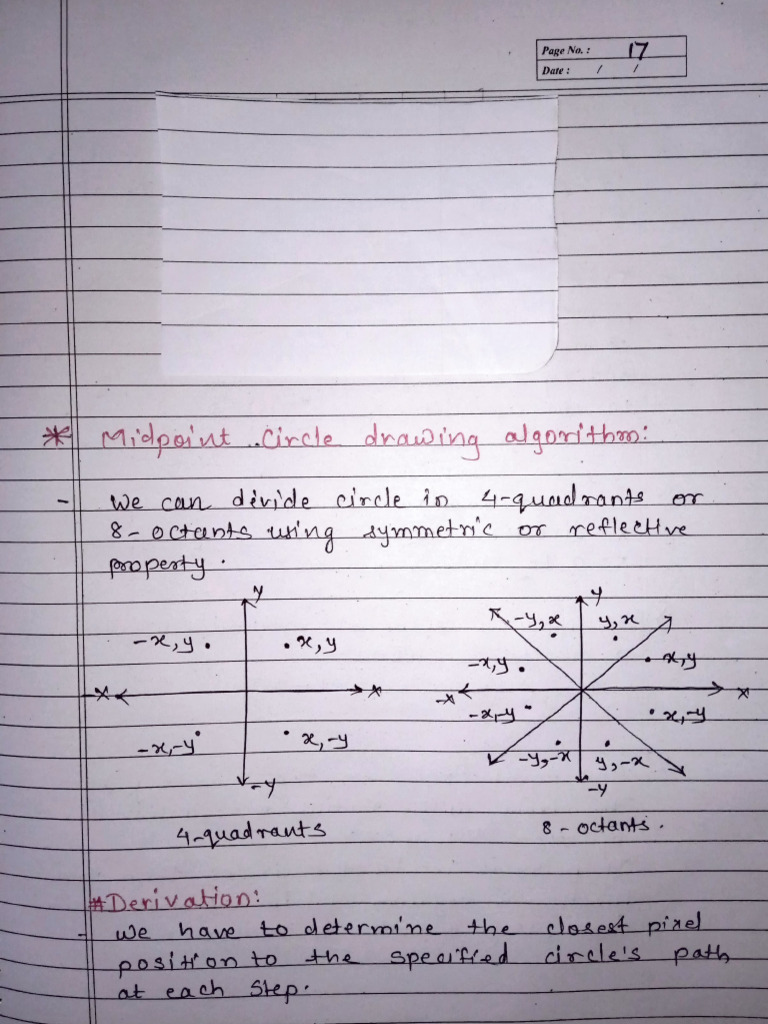 Page No. : 17
Date : / /
* Midpoint Circle drawing algorithm:
- We can divide circle in 4-quadrants or
8-octants using symmetric or reflective
property.
y
-x,y . .x,y
-x x
-x,-y . . x,-y
-y
4-quadrants
y
-y,x y,x
-x,y . . x,y
-x x
-x,-y . . x,-y
-y,-x y,-x
-y
8-octants.
#Derivation:
- We have to determine the closest pixel
position to the specified circle's path
at each step.